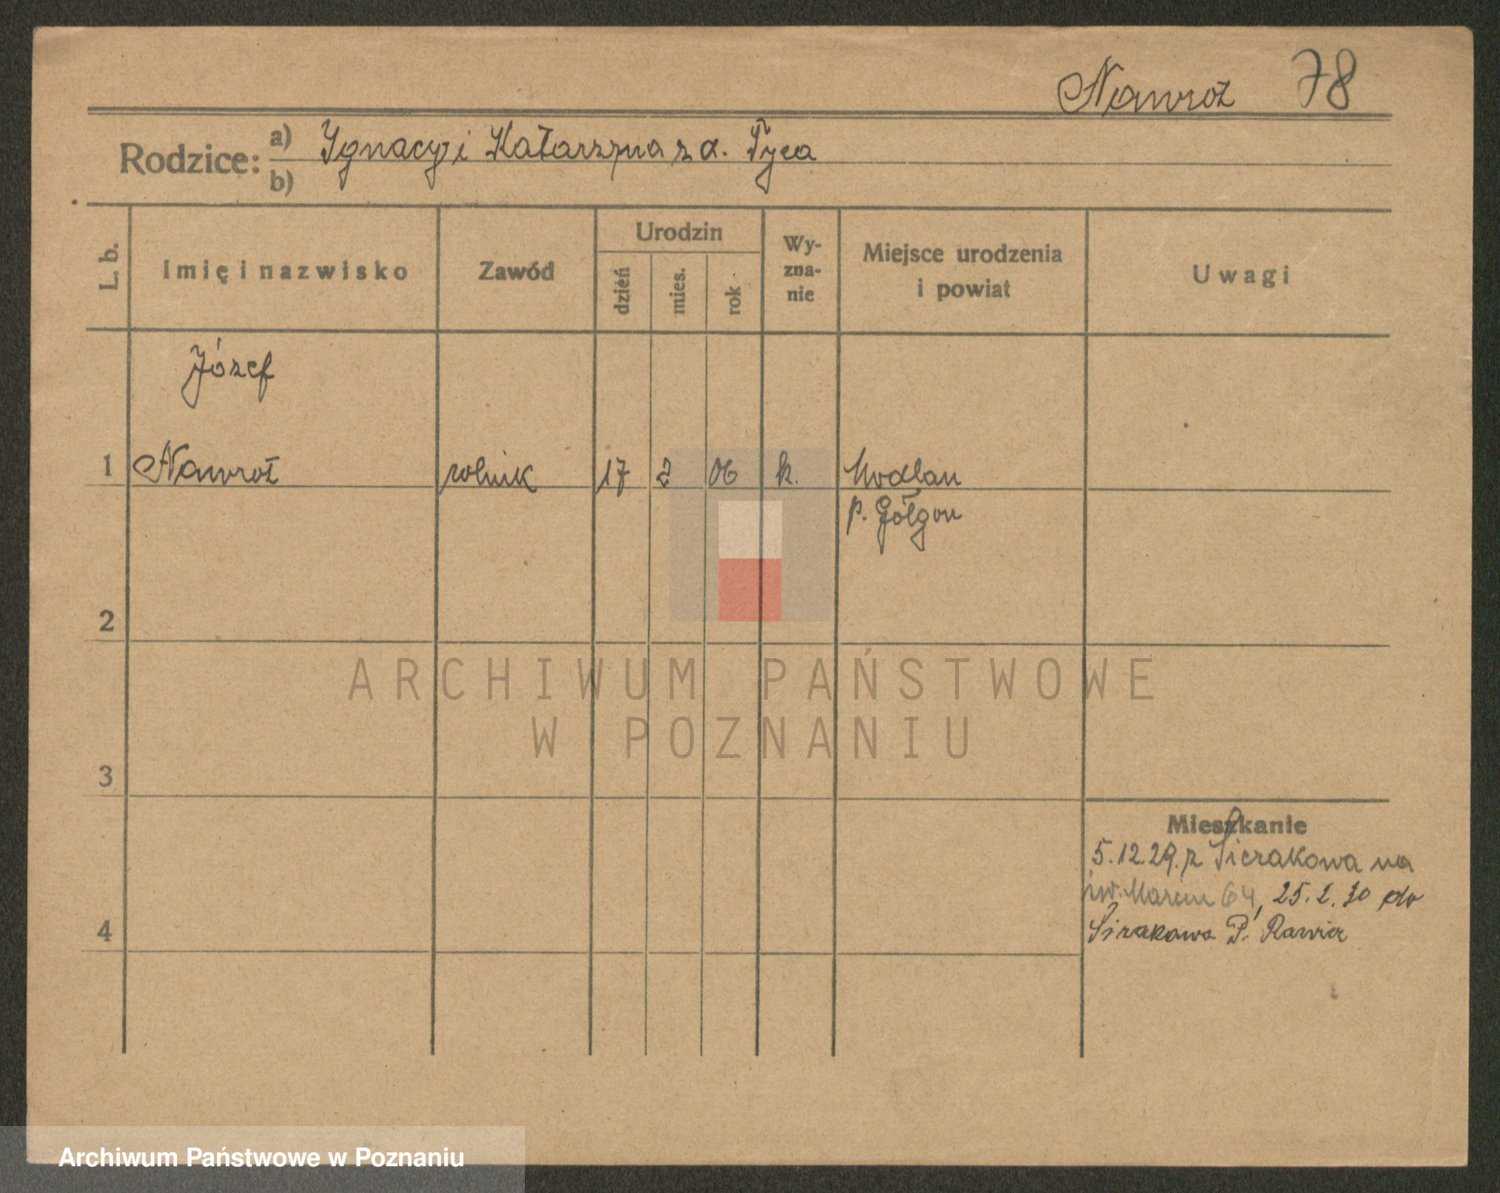 Nawrot 78
Rodzice: a) Ignacy i Katarzyna z d. Tyca
b)
L. b.
Imię i nazwisko
Zawód
Urodzin
dzień
mies.
rok
Wy-
zna-
nie
Miejsce urodzenia
i powiat
Uwagi
Józef
1 Nawrot rolnik 17 2 06 k.
p.
2
3
4
Mieszkanie
5.12.29. z Sierakowa na
św. Marcin 64, 25. 2. 30 do
Sierakowa P. Rawicz
ARCHIWUM PAŃSTWOWE
W POZNANIU
Archiwum Państwowe w Poznaniu